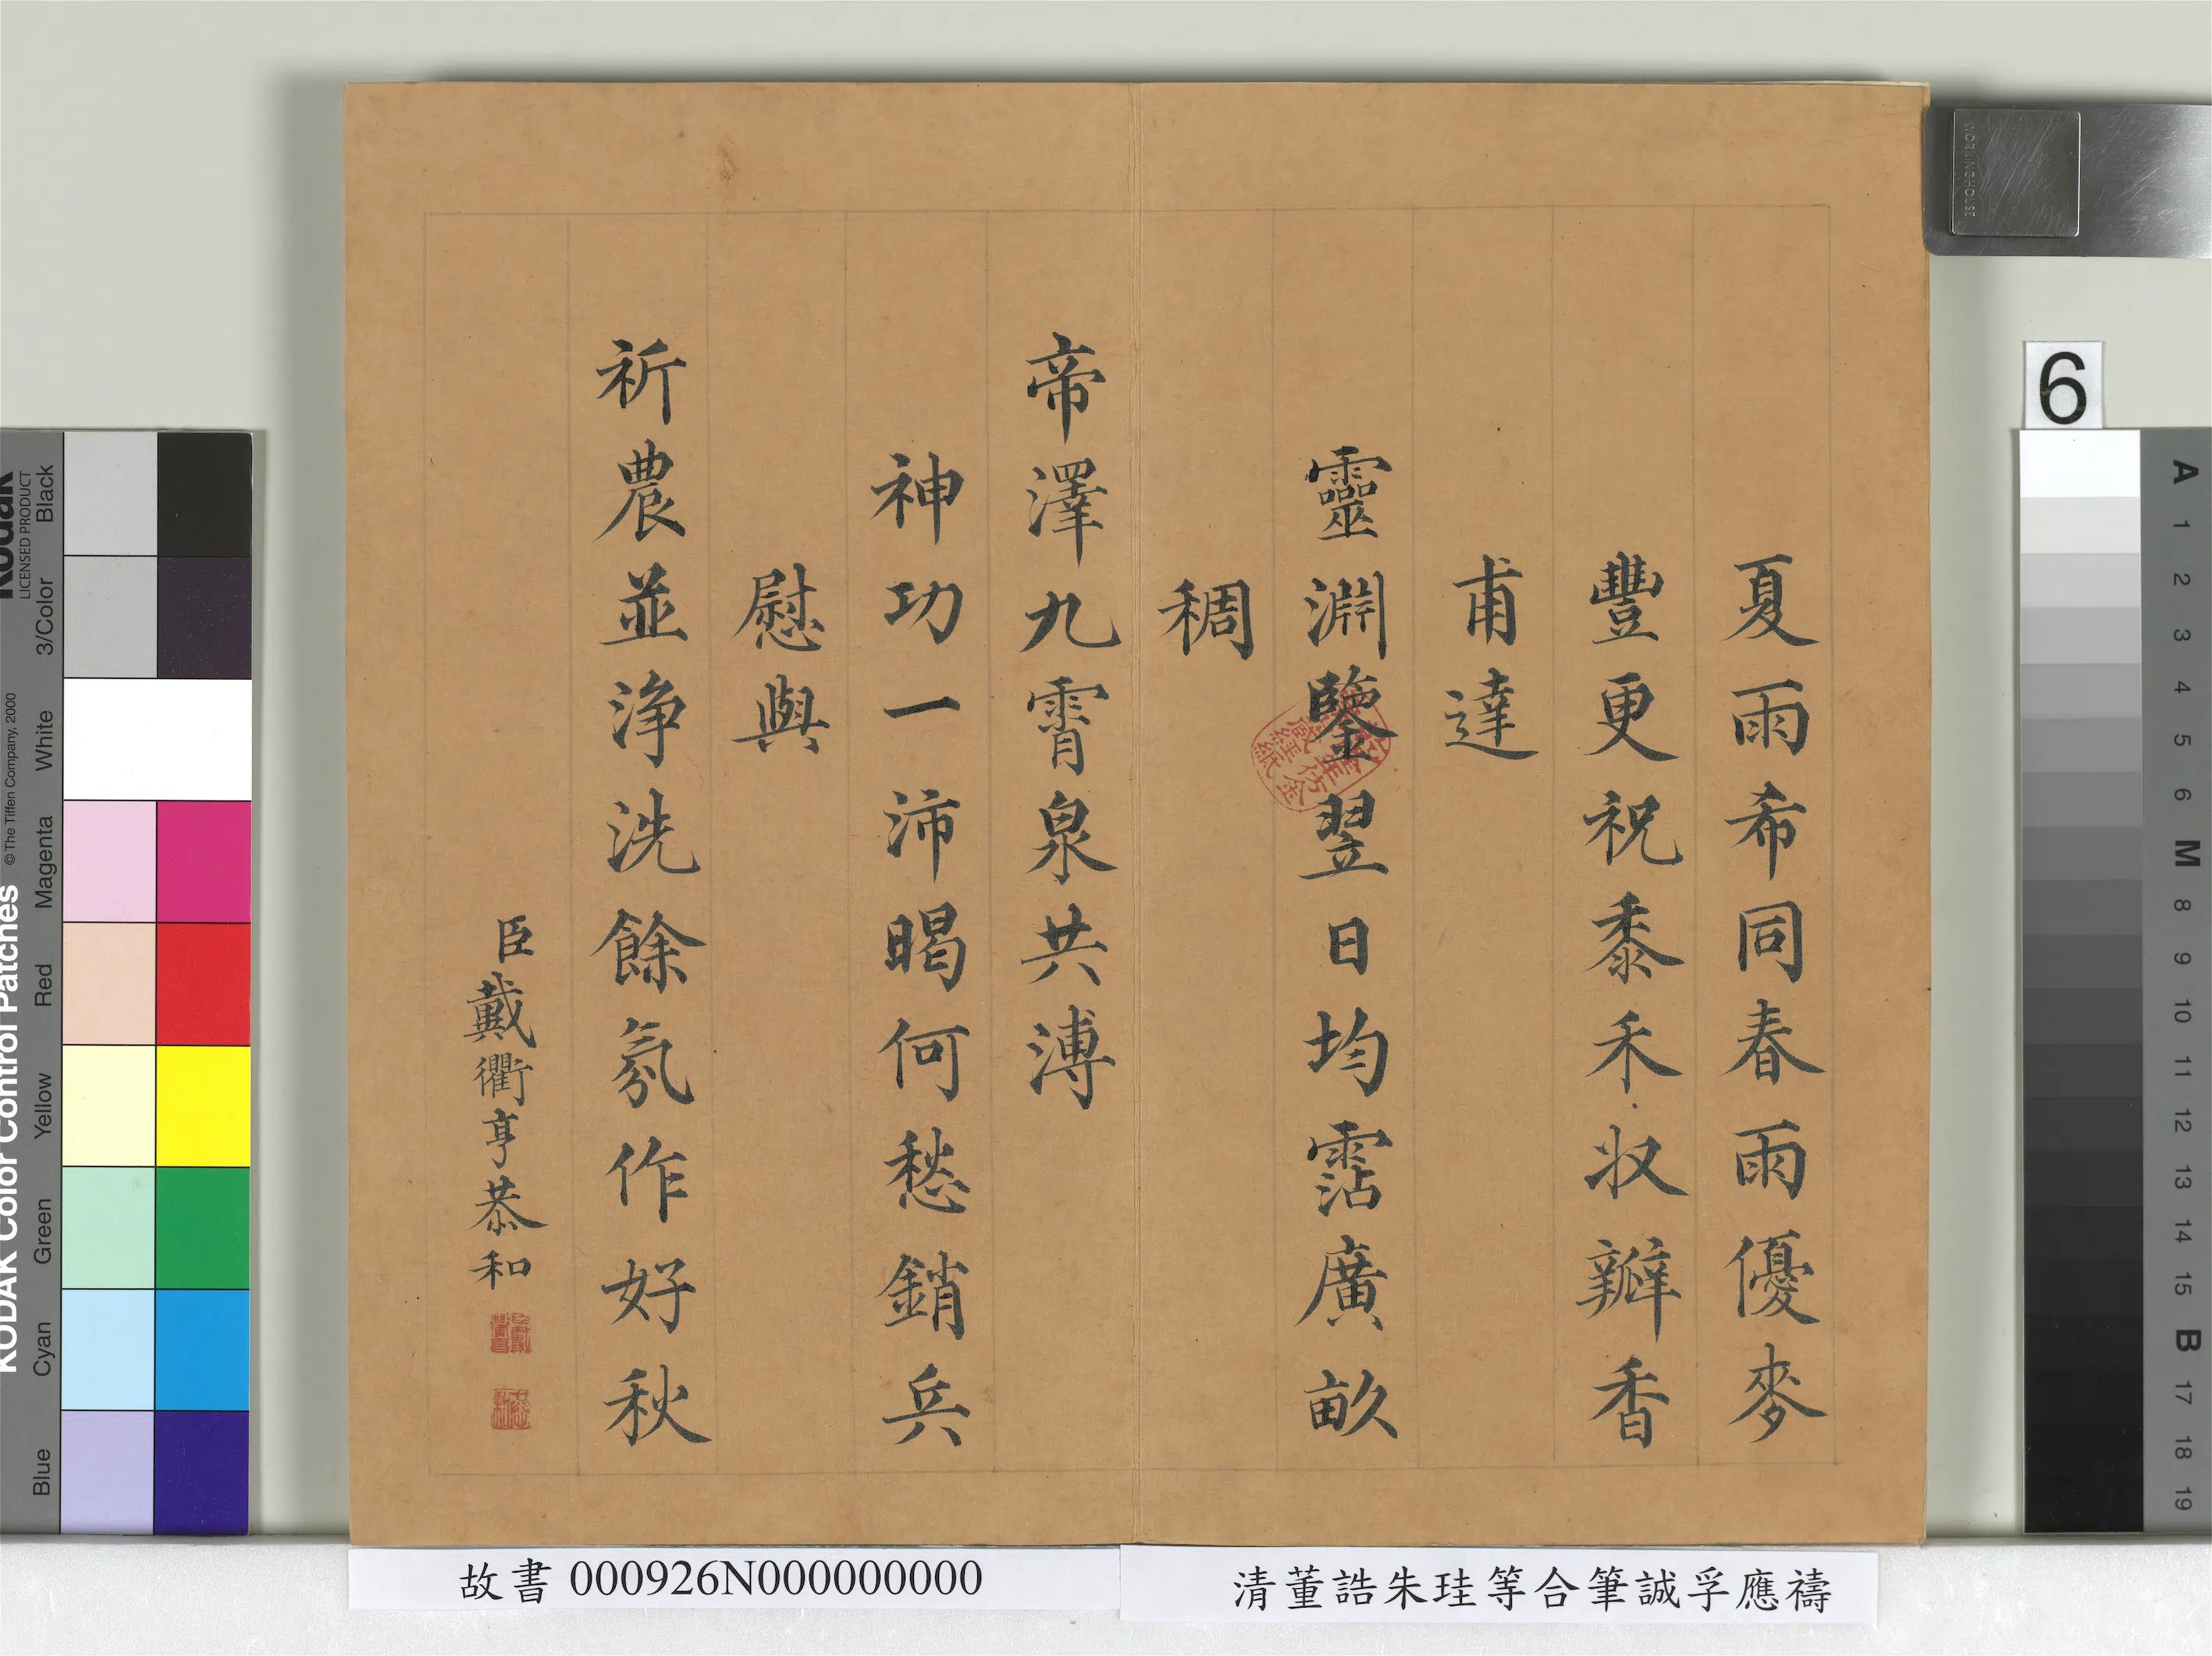 夏雨希同春雨優麥
豐更祝黍禾收瓣香
甫達
靈淵鑒翌日均霑廣畝
稠
帝澤九霄泉共溥
神功一沛暍何愁銷兵
慰與
祈農並淨洗餘氛作好秋
臣戴衢亨恭和
故書 000926N000000000
清董誥朱珪等合筆誠孚應禱
6
WORKINGHOUSE
Kodak
LICENSED PRODUCT
KODAK Color Control Patches
© The Tiffen Company, 2000
Black
3/Color
White
Magenta
Red
Yellow
Green
Cyan
Blue
A
1
2
3
4
5
6
M
8
9
10
11
12
13
14
15
B
17
18
19